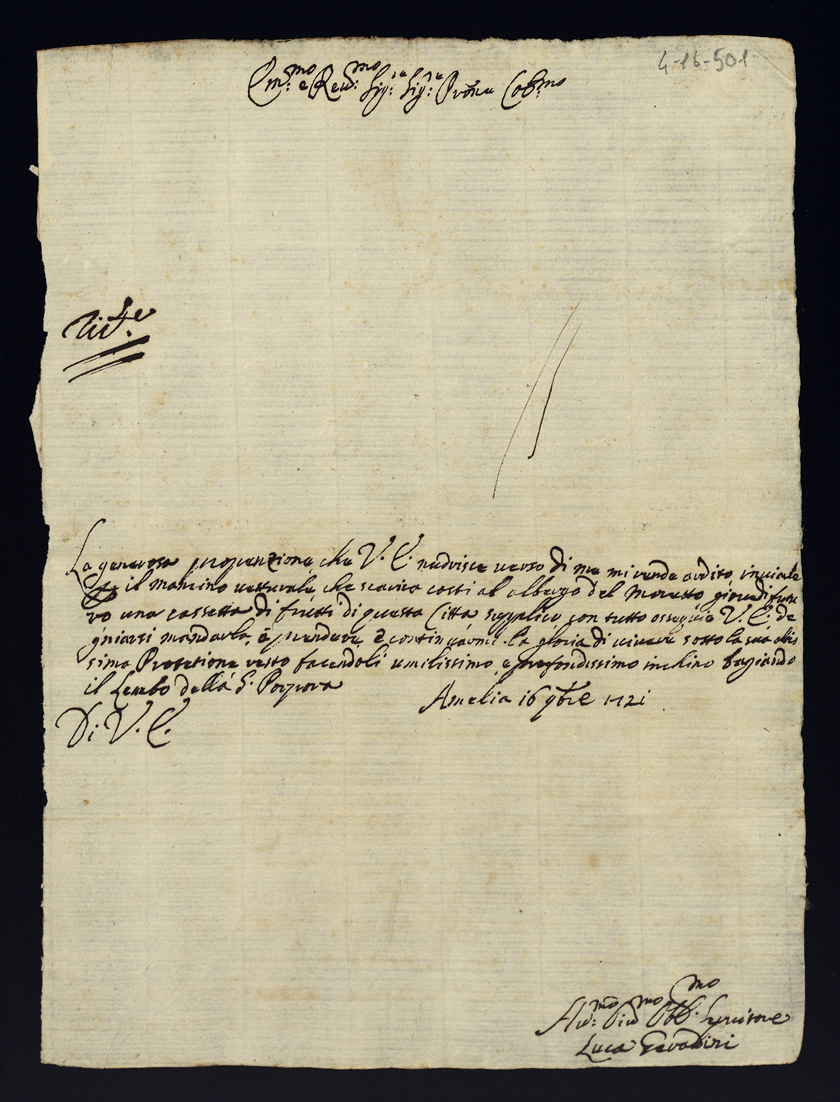 4-16-501
Em.mo e Reu.mo Sig:re Sig:re Prōne Col.mo
La generosa propenzione, che V. E. nudrisce uerso di me mi rende ardito, inuiale
il mancino uetturale, che scarica costi al albergo del Moretto giouedi futu
ro una cassetta di frutti di questa Città supplico con tutto ossequio V. E. de
gniarsi mandarla, à prendere, è continuarmi la gloria di uiuere sotto la sua altis
sima Protetione resto facendoli umilissimo, e profondissimo inchino baziando
il Lembo della S. Porpora
Amelia 16 9bre 1721
Di V. E.
Hu:mo Diu.mo Obb.mo Seruitore
Luca